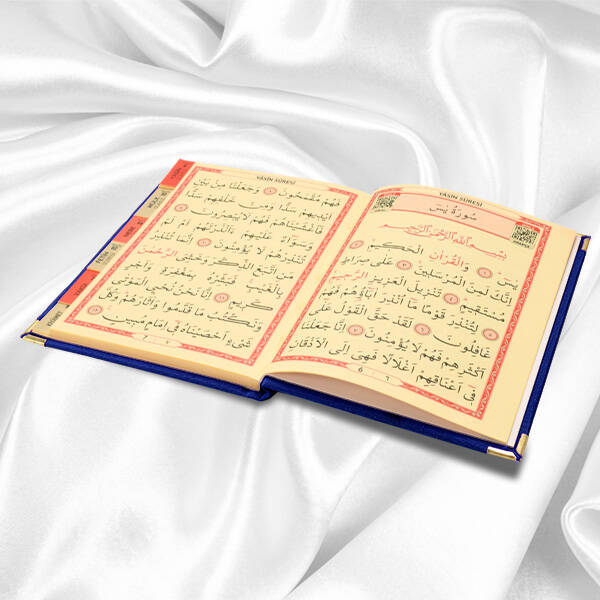 YÂSİN SÛRESİ
سُورَةُ يٰسٓ
بِسْمِ اللّٰهِ الرَّحْمٰنِ الرَّحِيمِ
يٰسٓ ﴿١﴾ وَالْقُرْاٰنِ الْحَكِيمِ ﴿٢﴾
اِنَّكَ لَمِنَ الْمُرْسَلِينَ ﴿٣﴾ عَلٰى صِرَاطٍ
مُسْتَقِيمٍ ﴿٤﴾ تَنْزِيلَ الْعَزِيزِ الرَّحِيمِ ﴿٥﴾
لِتُنْذِرَ قَوْمًا مَٓا اُنْذِرَ اٰبَٓاؤُهُمْ فَهُمْ
غَافِلُونَ ﴿٦﴾ لَقَدْ حَقَّ الْقَوْلُ عَلٰٓى
اَكْثَرِهِمْ فَهُمْ لَا يُؤْمِنُونَ ﴿٧﴾ اِنَّا جَعَلْنَا
فِٓي اَعْنَاقِهِمْ اَغْلَالًا فَهِيَ اِلَى الْاَذْقَانِ
6 ٦
YÂSİN SÛRESİ
فَهُمْ مُقْمَحُونَ ﴿٨﴾ وَجَعَلْنَا مِنْ بَيْنِ
اَيْدِيهِمْ سَدًّا وَمِنْ خَلْفِهِمْ سَدًّا
فَاَغْشَيْنَاهُمْ فَهُمْ لَا يُبْصِرُونَ ﴿٩﴾
وَسَوَٓاءٌ عَلَيْهِمْ ءَاَنْذَرْتَهُمْ اَمْ لَمْ
تُنْذِرْهُمْ لَا يُؤْمِنُونَ ﴿١٠﴾ اِنَّمَا تُنْذِرُ
مَنِ اتَّبَعَ الذِّكْرَ وَخَشِيَ الرَّحْمٰنَ
بِالْغَيْبِ فَبَشِّرْهُ بِمَغْفِرَةٍ وَاَجْرٍ
كَرِيمٍ ﴿١١﴾ اِنَّا نَحْنُ نُحْيِ الْمَوْتٰى
وَنَكْتُبُ مَا قَدَّمُوا وَاٰثَارَهُمْ وَكُلَّ
شَيْءٍ اَحْصَيْنَاهُ فِٓي اِمَامٍ مُبِينٍ ﴿١٢﴾
7 ٧